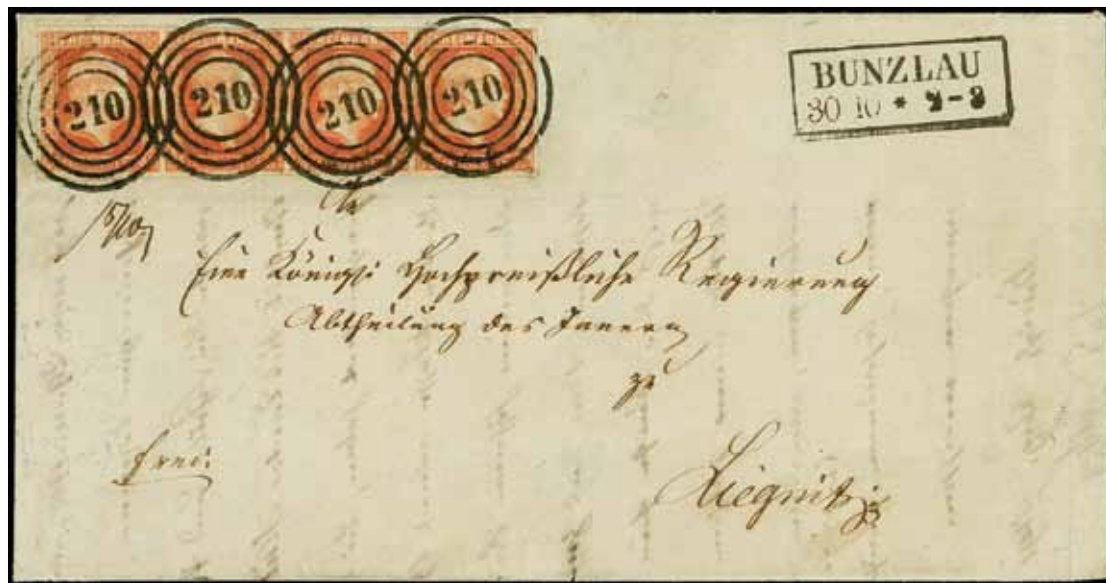 210 210 210 210
BUNZLAU
30 10 * 2-3
An
Eine Königl: Hochpreißliche Regierung
Abtheilung des Innern
zu
frei.
Liegnitz